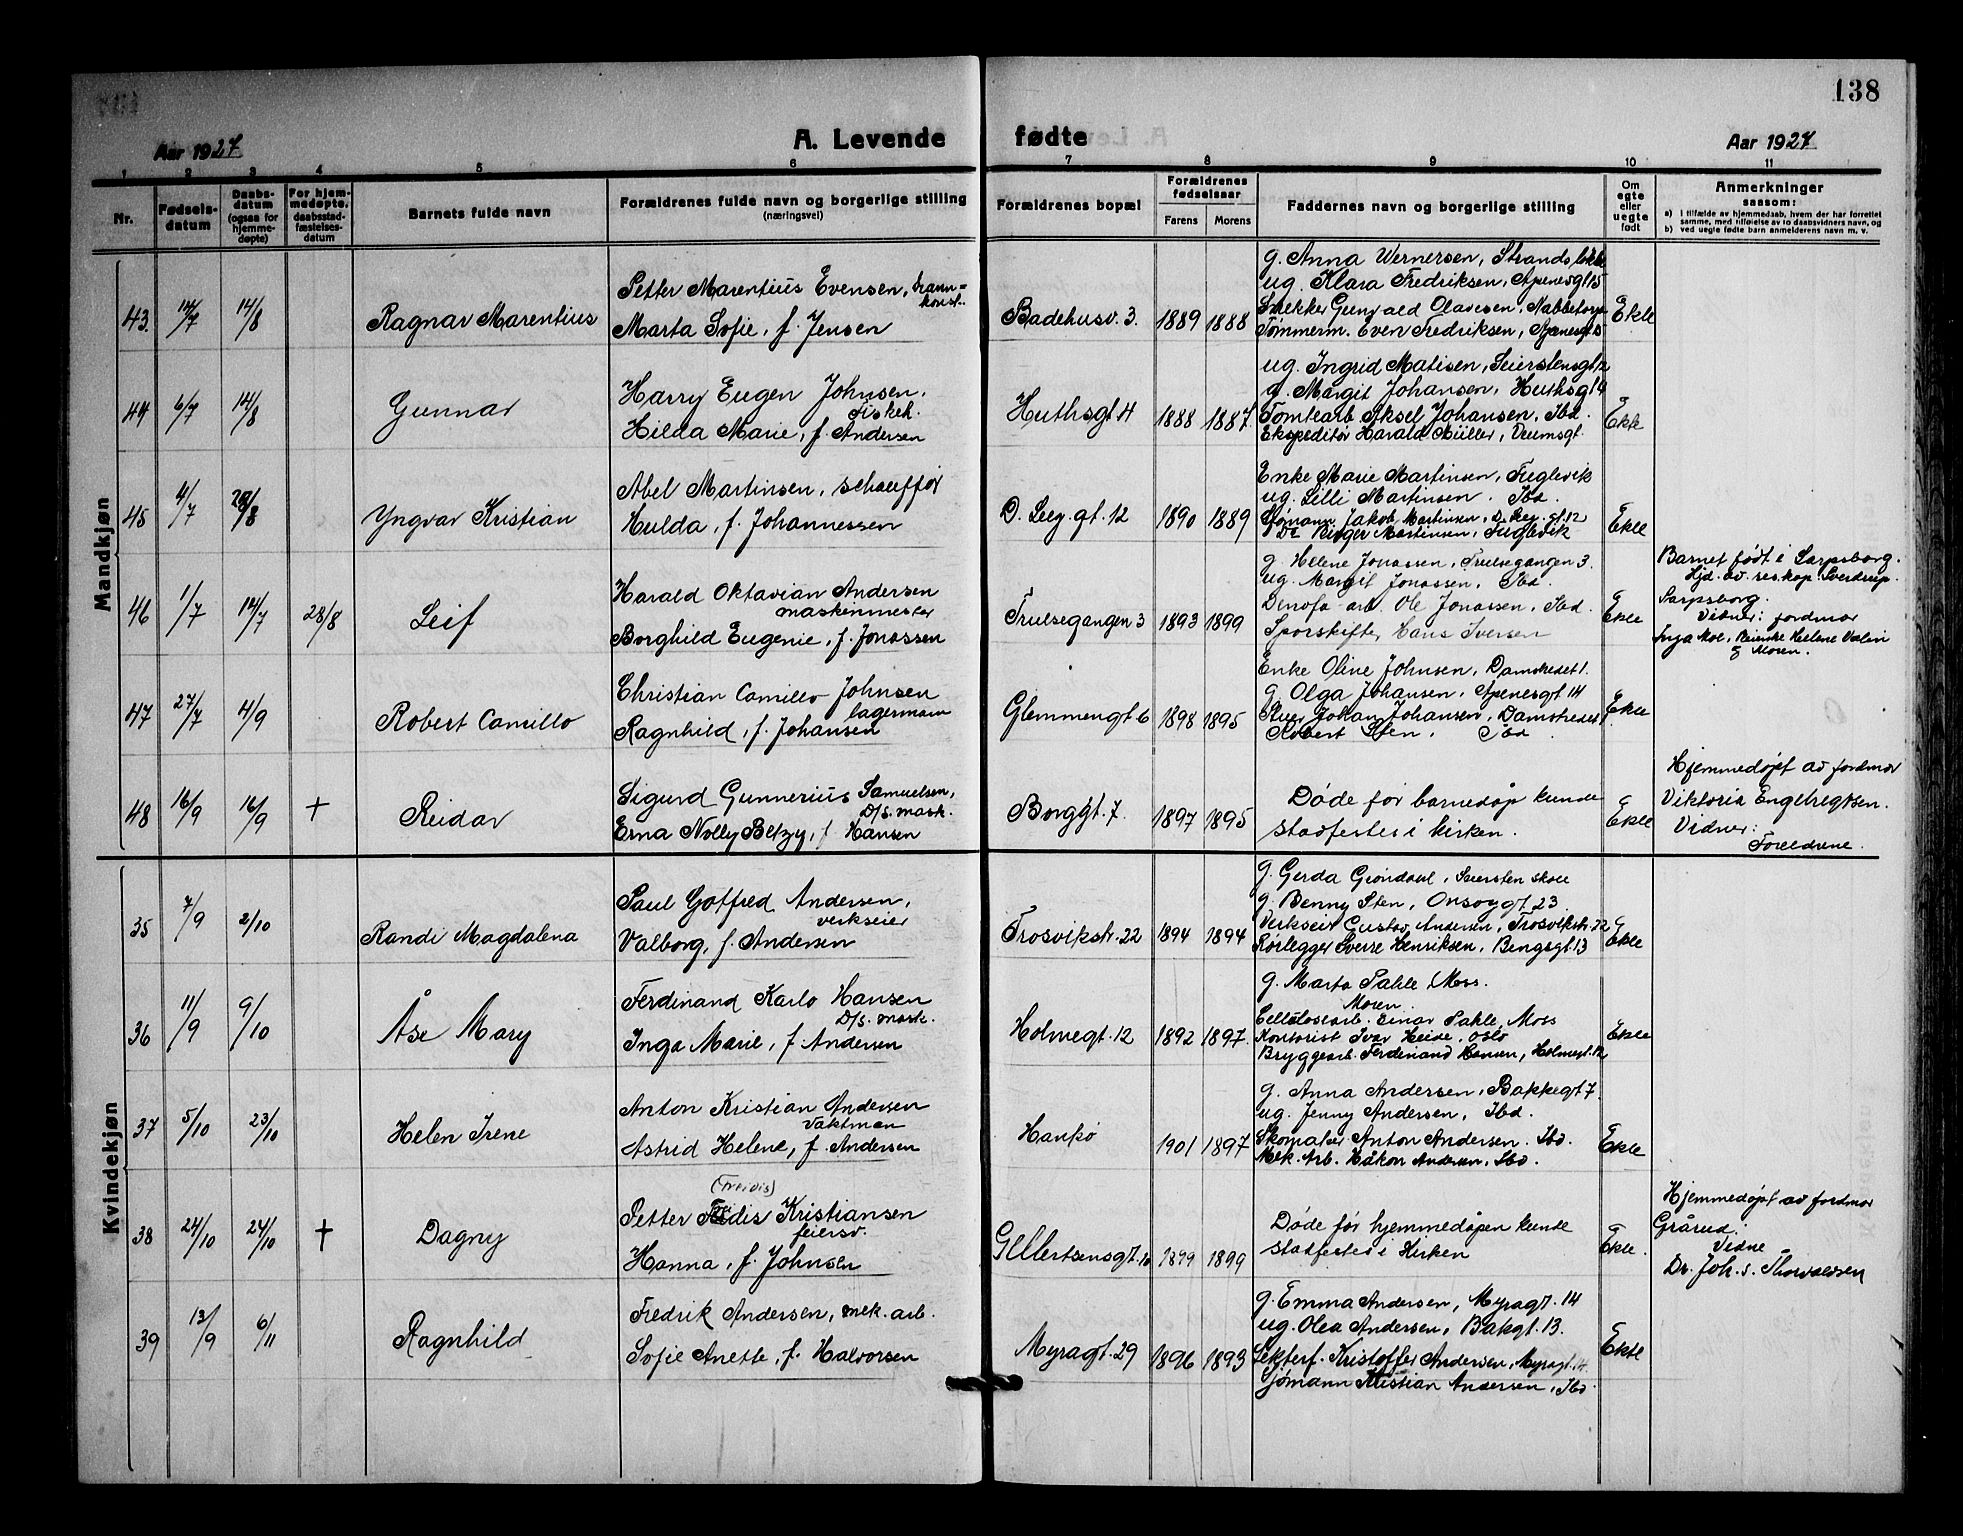 138
A. Levende fødte
Aar 1927
Aar 1927
1 2 3 4 5 6 7 8 9 10 11
Nr.
Fødselsdatum
Daabsdatum (ogsaa for hjemmedøpte)
For hjemmedøpte, daabsstadfæstelsesdatum
Barnets fulde navn
Forældrenes fulde navn og borgerlige stilling
(næringsvei)
Forældrenes bopæl
Forældrenes fødselsaar
Farens Morens
Faddernes navn og borgerlige stilling
Om egte eller uegte født
Anmerkninger
saasom:
a) I tilfælde av hjemmedaab, hvem der har forrettet samme, med tilføielse av to daabsvidners navn, og
b) ved uegte fødte barn anmelderens navn m. v.
Mandkjøn
43. 14/7 14/8 Ragnar Marentius
Petter Marentius Evensen, brannkonst.
Marta Sofie, f. Jensen
Badehusv. 3. 1889 1888
g. Anna Wernersen, Strandsløkke
ug. Klara Fredriksen, Apenesgt 15
Snekker Gunvald Olavesen, Nabbetorp
Tømmerm. Even Fredriksen, Apenesgt 15
Ekte
44 6/7 14/8 Gunnar
Harry Eugen Johnsen, fiskeh.
Hilda Marie, f. Andersen
Huthsgt 4 1888 1887.
ug. Ingrid Matisen, Seierstensgt 12
g. Margit Johansen, Huthsgt 4
Tomtearb Aksel Johansen, Ibd.
Ekspeditør Harald Müller, Vrumsgt.
Ekte
45 4/7 28/8 Yngvar Kristian
Abel Martinsen, schauffør
Hulda, f. Johannessen
D. Leegt. 12 1890 1889
Enke Marie Martinsen, Fuglevik
ug. Lilli Martinsen. Ibd.
Sjømann Jakob Martinsen, D. Leegt. 12
Do Birger Martinsen, Fuglevik
Ekte
46 1/7 14/7 28/8 Leif
Harald Oktavian Andersen
maskinmester
Borghild Eugenie, f. Jonassen
Trulsegangen 3 1893 1899
g. Helene Jonassen, Trulsegangen 3.
ug. Margit Jonassen, Ibd
Denofa-arb. Ole Jonassen, Ibd.
Sporskifter Hans Iversen
Ekte
Barnet født i Sarpsborg.
Hjd. av res.kap. Sverdrup.
Sarpsborg.
Vidner: jordmor
Inga Moe, Helene
og Moren.
47 27/7 4/9 Robert Camillo
Christian Camillo Johnsen
lagermann
Ragnhild, f. Johansen
Glemmengt 6 1898 1895
Enke Oline Johnsen, Damstredet 1.
g. Olga Johansen, Apenesgt 14
Stuer Johan Johansen, Damstredet 1
Robert Sten, Ibd.
Ekte
48 16/9 16/9 † Reidar
Sigurd Gunnerius Samuelsen,
D/s. mask.
Erna Nolly Betzy, f. Hansen
Borggt. 7 1897 1895
Døde før barnedåp kunde
stadfestes i kirken.
Ekte
Hjemmedøpt av jordmor
Viktoria Engebregtsen.
Vidner:
Foreldrene.
Kvindekjøn
35 7/9 2/10 Randi Magdalena
Paul Gotfred Andersen,
verkseier
Valborg, f. Andersen
Trosvikstr. 22 1894 1894
g. Gerda Grøndahl, Seiersten skole
g. Benny Sten, Onsøygt 23
Verkseier Gustav Andersen, Trosvikstr. 22
Rørlegger Sverre Henriksen, Bengsgt. 13
Ekte
36 11/9 9/10 Åse Mary
Ferdinand Karlo Hansen
D/s. mask.
Inga Marie, f. Andersen
Holmegt. 12 1892 1897.
g. Marta Pahle, Moss.
Moren.
Cellulosearb. Einar Pahle, Moss
Kontorist Ivar Heide, Oslo
Bryggearb. Ferdinand Hansen, Holmegt. 12
Ekte
37 5/10 23/10 Helen Irene
Anton Kristian Andersen
Vaktman
Astrid Helene, f. Andersen
Hankø 1901 1897
g. Anna Andersen, Bakkegt 7.
ug. Jenny Andersen, Ibd.
Skomaker Anton Andersen. Ibd.
Mek. Arb. Håkon Andersen, Ibd.
Ekte
38 24/10 24/10 † Dagny
(Freidis)
Petter Kristiansen
feiersv.
Hanna, f. Johnsen
Gellertsensgt. 10 1899 1899
Døde før hjemmedåpen kunde
stadfestes i Kirken
Ekte.
Hjemmedøpt av jordmor
Grårud.
Vidne
Dr. Joh. S. Thorvaldsen
39 13/9 6/11 Ragnhild
Fredrik Andersen, mek. arb.
Sofie Anette, f. Halvorsen
Myragt. 29 1896 1893
g. Emma Andersen, Myragt. 14
ug. Olea Andersen, Bakgt. 13.
Sekterf. Kristoffer Andersen, Myragt. 14
Sjømann Kristian Andersen, Ibd.
Ekte